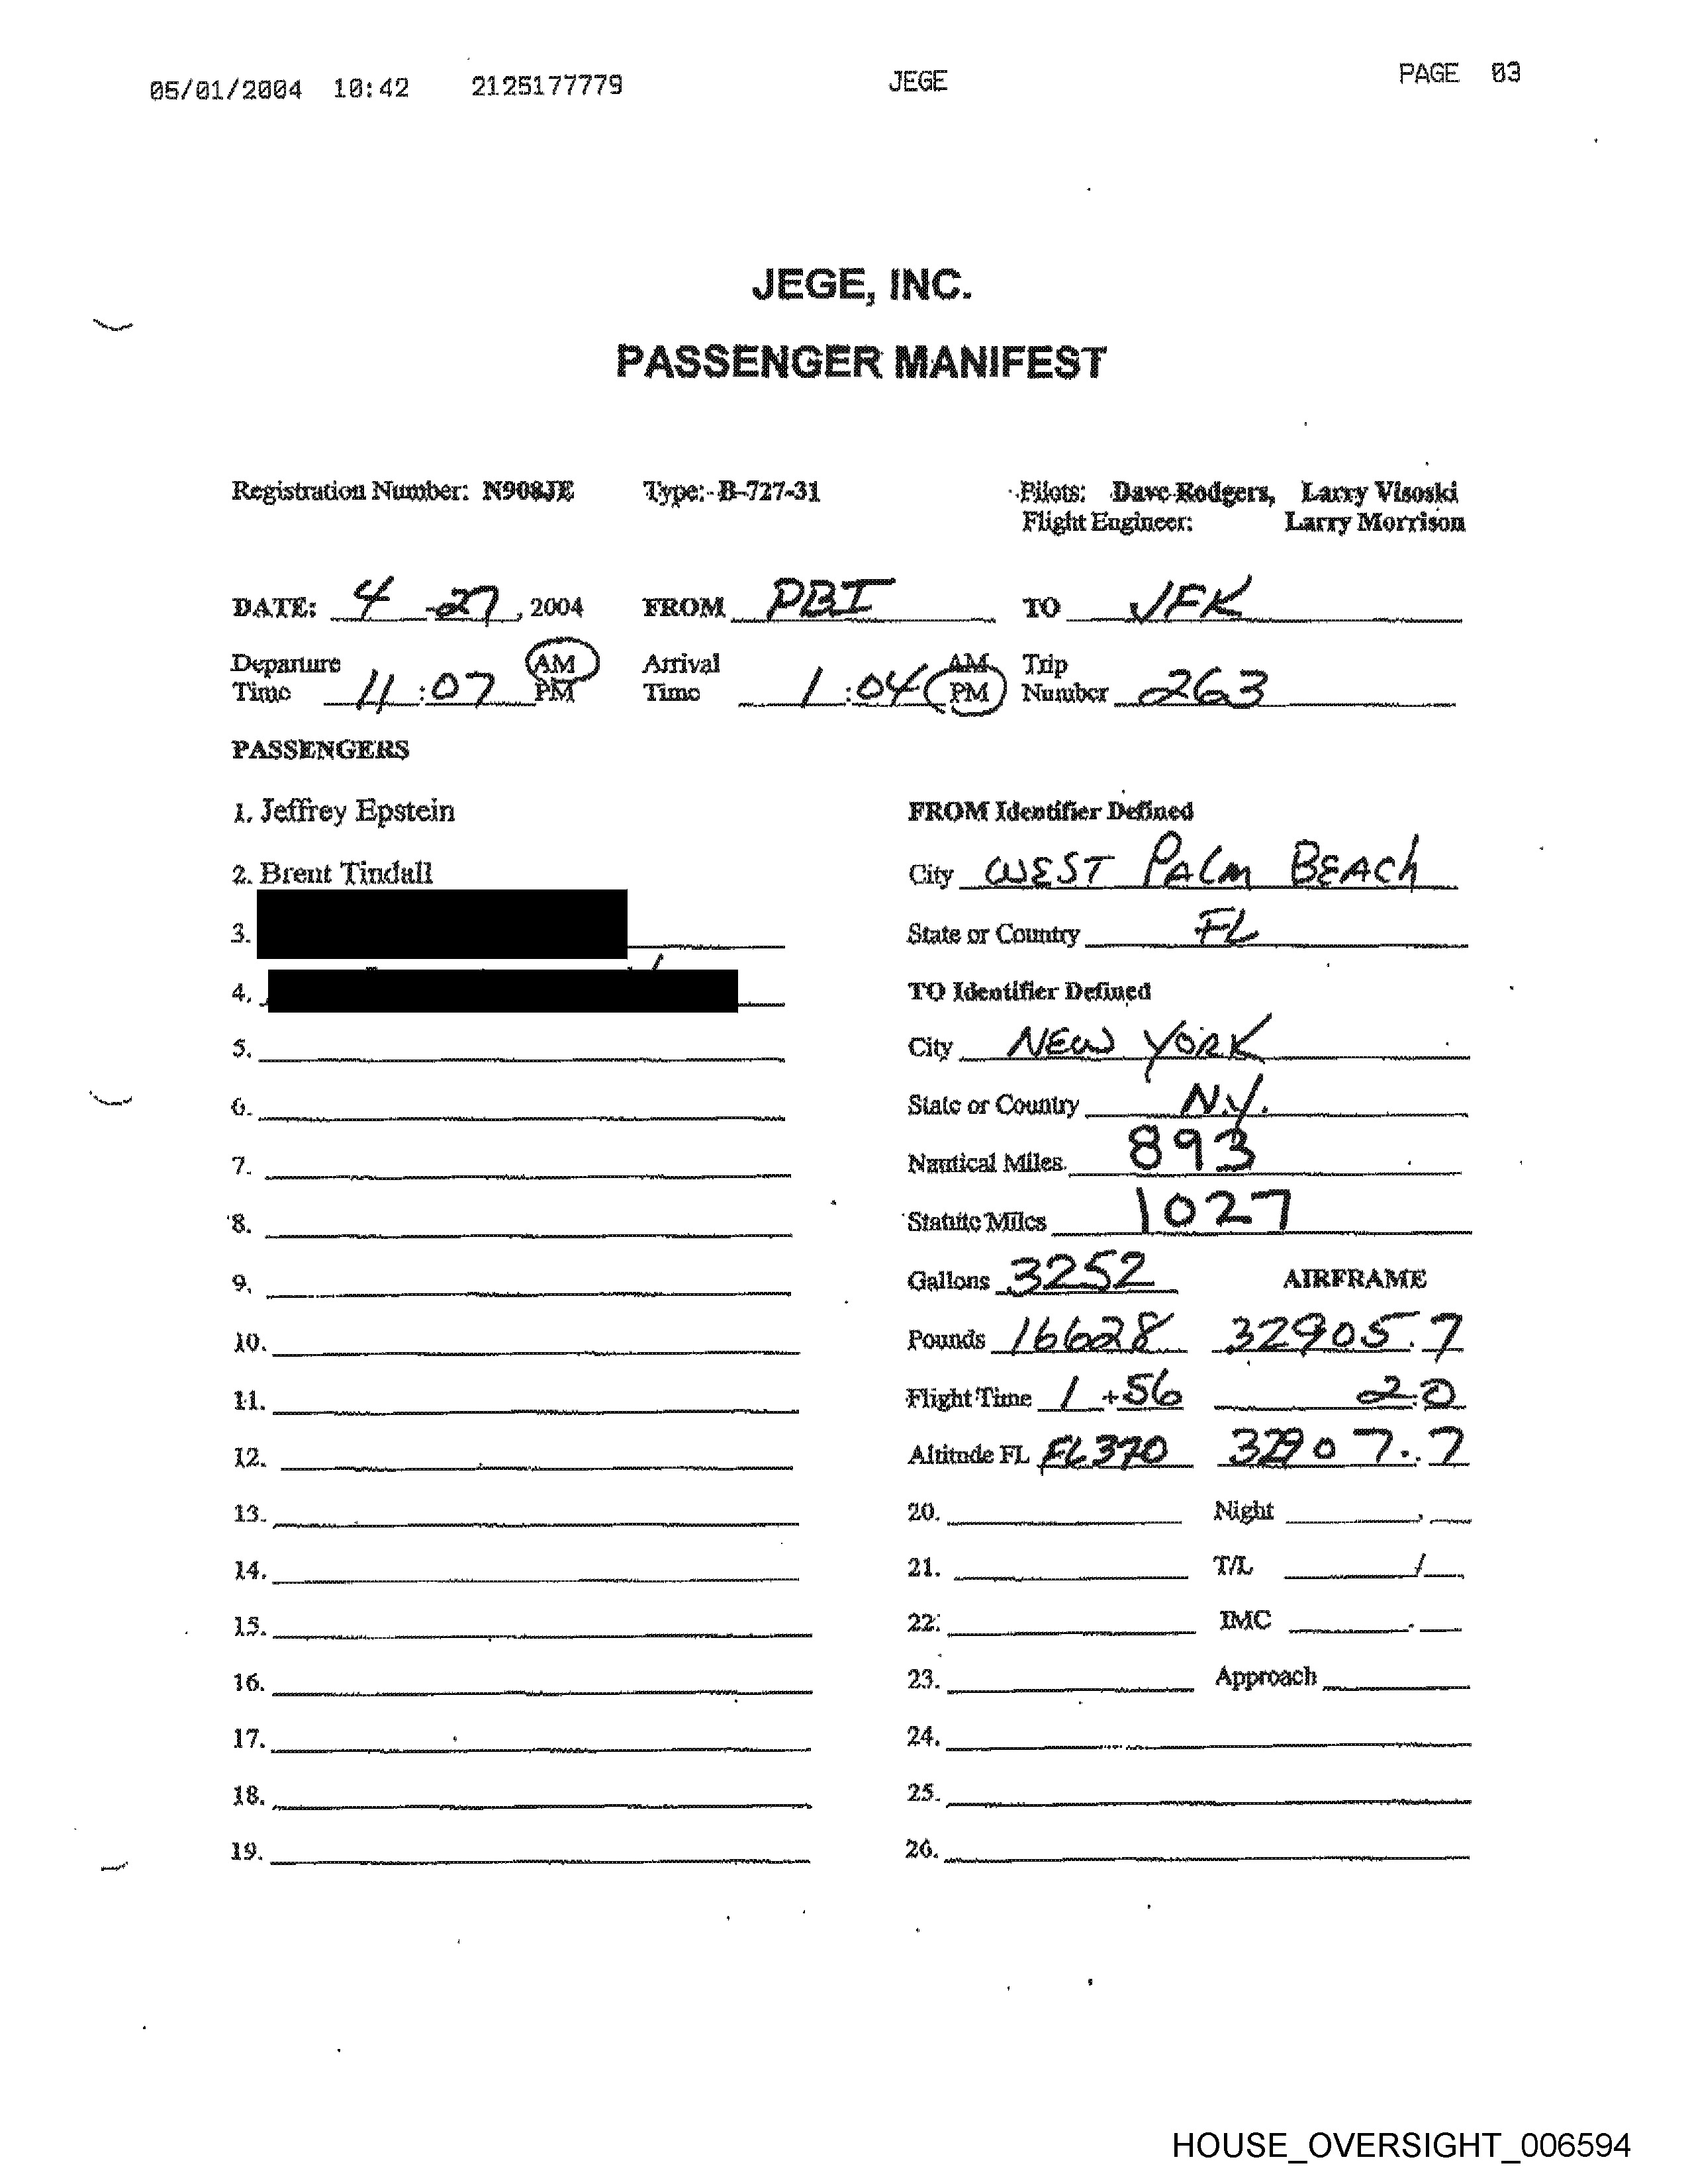 05/01/2004 10:42 2125177779 JEGE PAGE 03
JEGE, INC.
PASSENGER MANIFEST
Registration Number: N908JE Type: B-727-31 Pilots: Dave Rodgers, Larry Visoski
Flight Engineer: Larry Morrison
DATE: 4 -27, 2004 FROM PBI TO JFK
Departure Time 11:07 AM PM Arrival Time 1:04 AM PM Trip Number 263
PASSENGERS
1. Jeffrey Epstein
2. Brent Tindall
3.
4.
5.
6.
7.
8.
9.
10.
11.
12.
13.
14.
15.
16.
17.
18.
19.
FROM Identifier Defined
City WEST PALM BEACH
State or Country FL
TO Identifier Defined
City NEW YORK
State or Country N.Y.
Nautical Miles 893
Statute Miles 1027
Gallons 3252 AIRFRAME
Pounds 16628 32905.7
Flight Time 1 +56 2.0
Altitude FL FL370 32907.7
20. Night
21. T/L /
22. IMC
23. Approach
24.
25.
26.
HOUSE_OVERSIGHT_006594